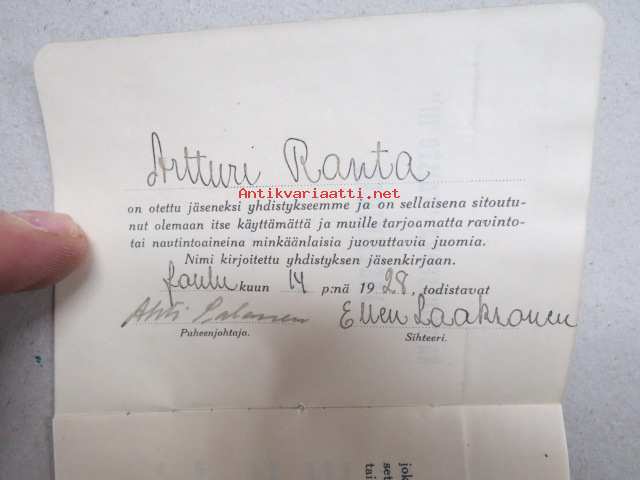 Artturi Ranta
Antikvariaatti.net
on otettu jäseneksi yhdistykseemme ja on sellaisena sitoutu-
nut olemaan itse käyttämättä ja muille tarjoamatta ravinto-
tai nautintoaineina minkäänlaisia juovuttavia juomia.
Nimi kirjoitettu yhdistyksen jäsenkirjaan.
Joulu kuun 14 p:nä 1928, todistavat
Ahti Ellen Laaksonen
Puheenjohtaja. Sihteeri.
jok
set
tai